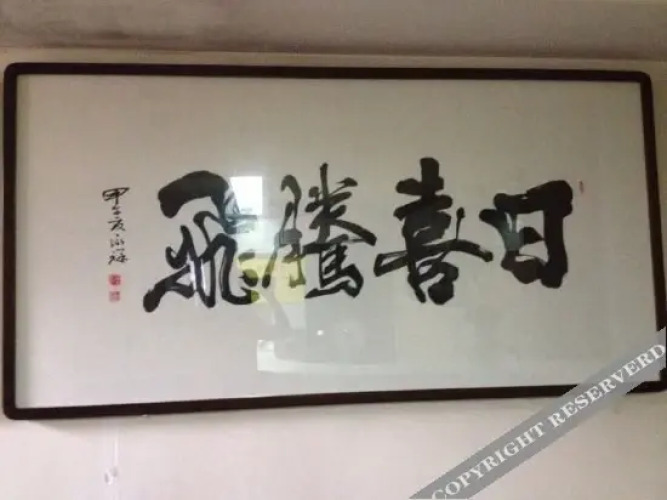 日喜騰飛
甲午夏
COPYRIGHT RESERVERD